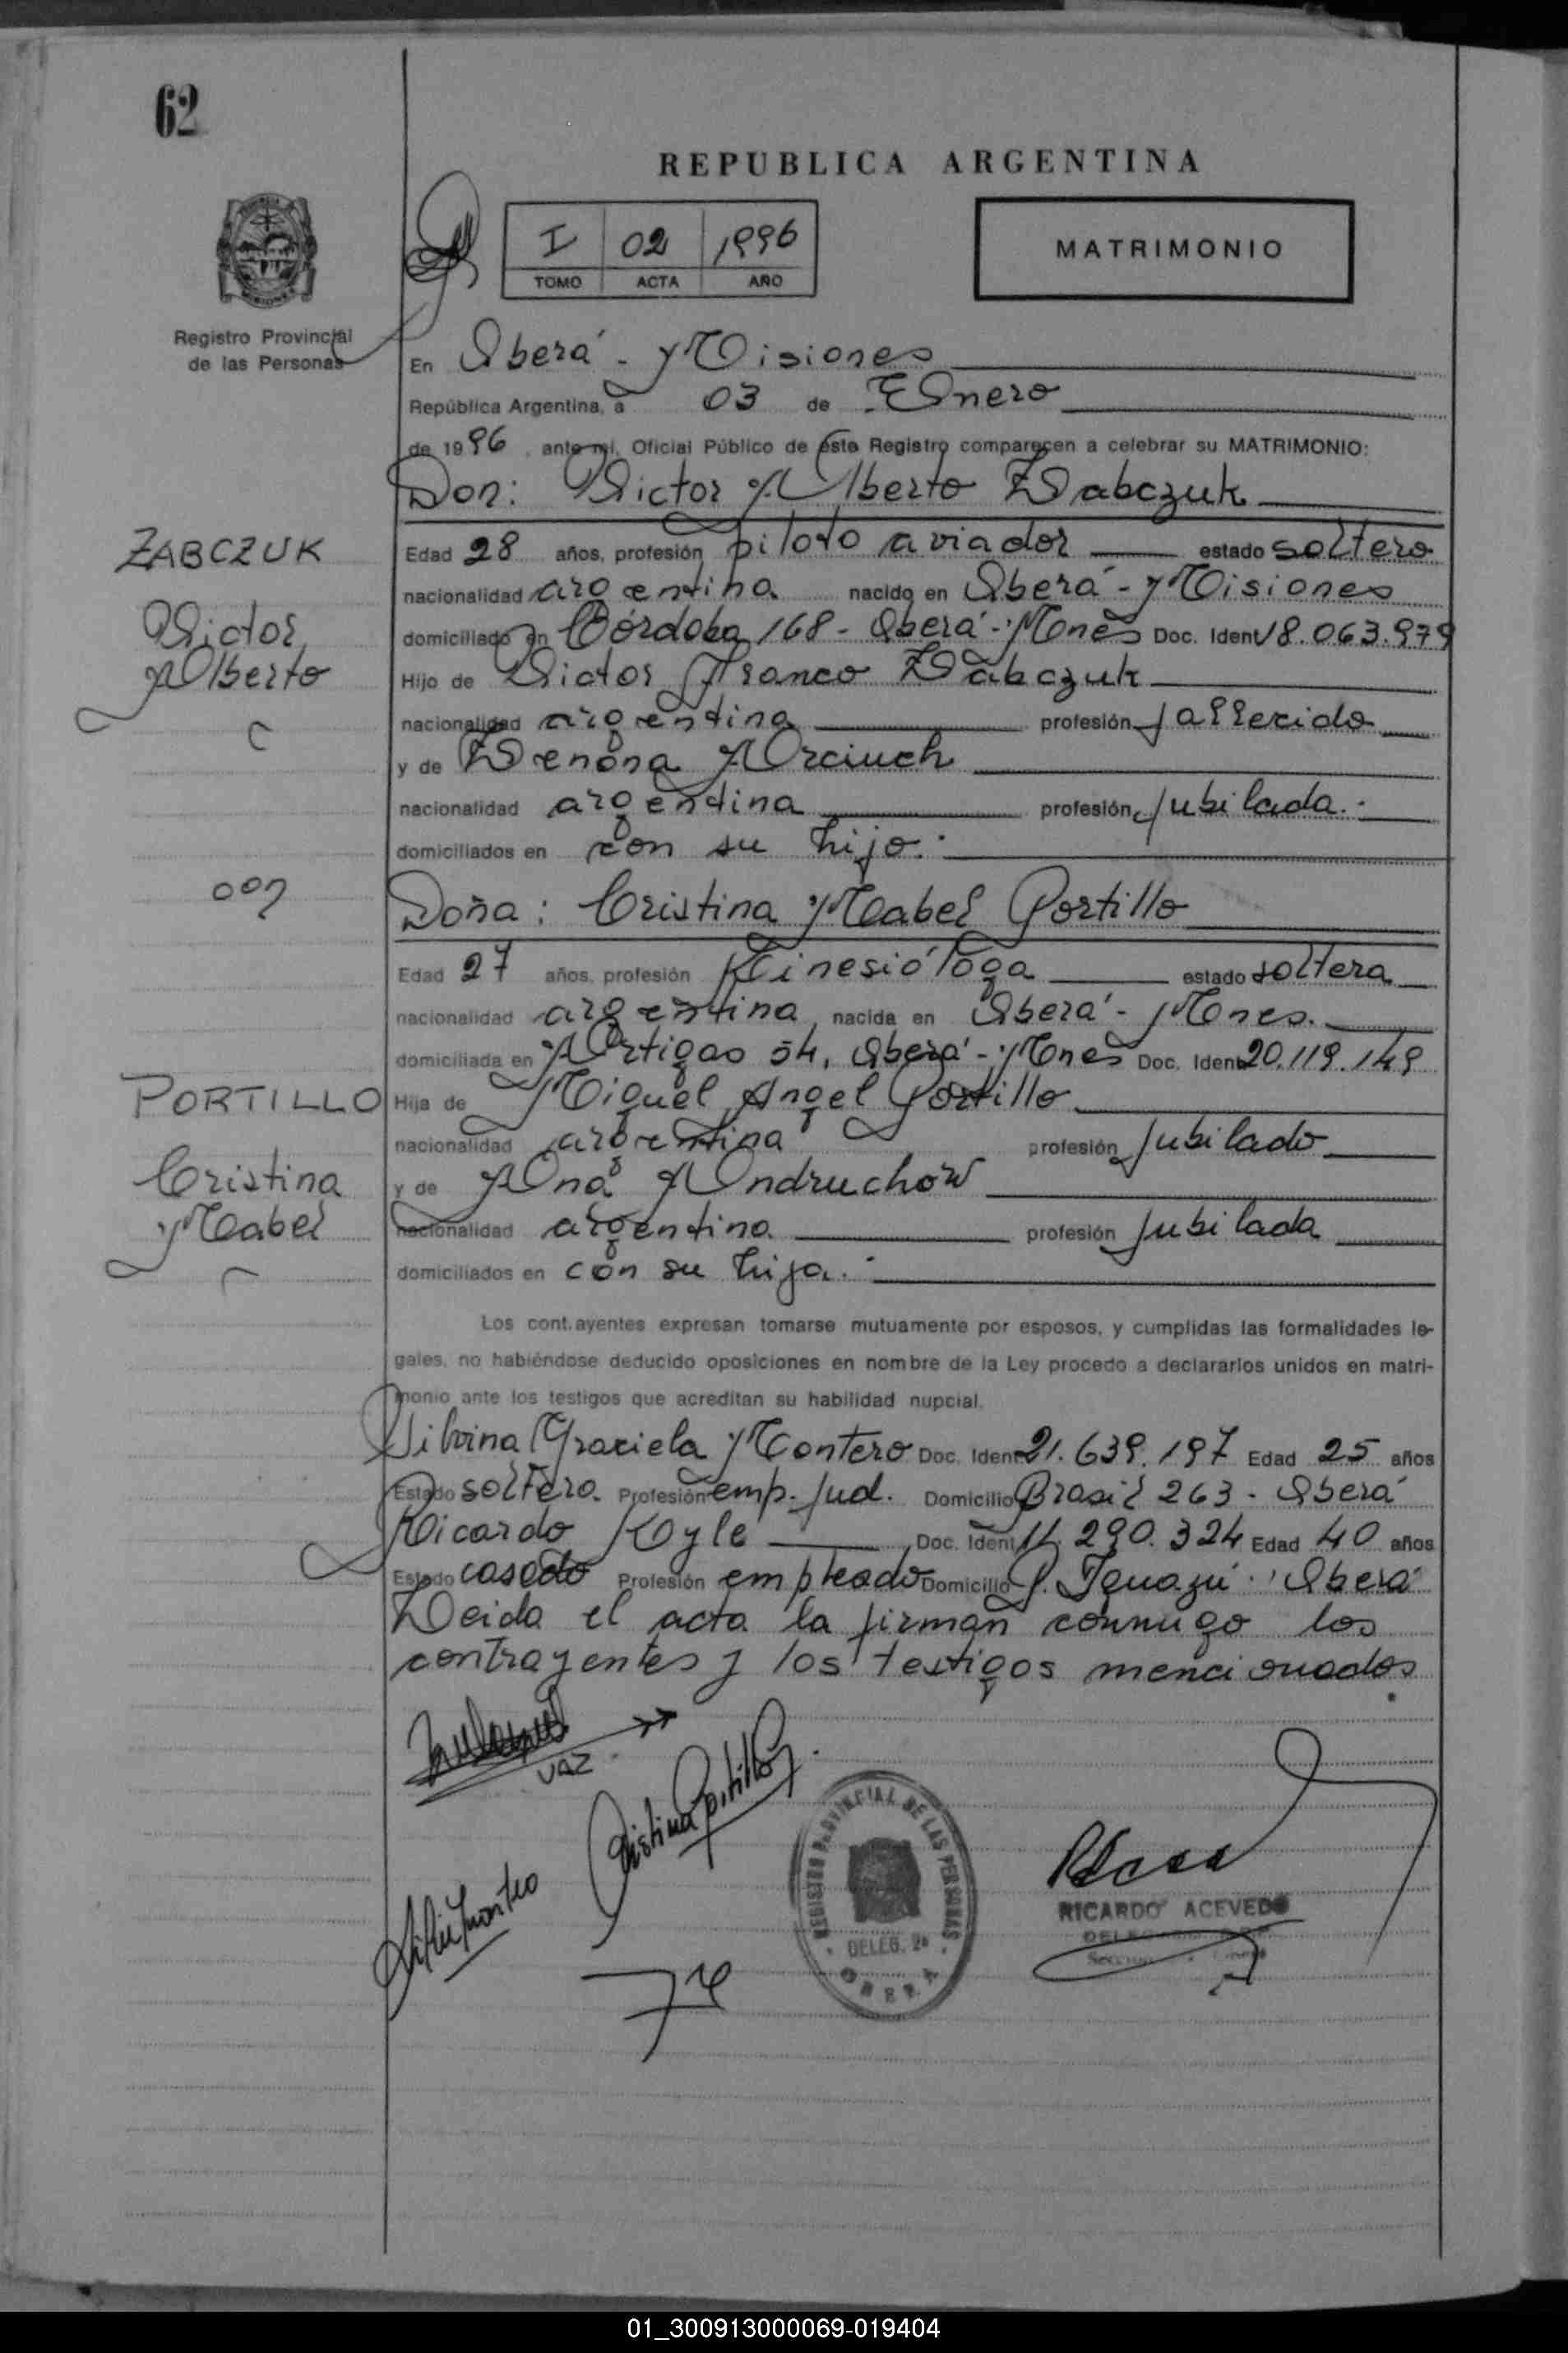 62
REPUBLICA ARGENTINA
I 02 1996
TOMO ACTA AÑO
MATRIMONIO
Registro Provincial
de las Personas
En Oberá - Misiones
República Argentina, a 03 de Enero
de 1996, ante mi, Oficial Público de este Registro comparecen a celebrar su MATRIMONIO:
Don: Victor Alberto Zabczuk
ZABCZUK
Victor
Alberto
c
Edad 28 años, profesión piloto aviador estado soltero
nacionalidad argentina nacido en Oberá - Misiones
domiciliado en Córdoba 168 - Oberá - Mnes Doc. Ident 18.063.979
Hijo de Victor Franco Zabczuk
nacionalidad argentina profesión fallecido
y de Zenona Arciuch
nacionalidad argentina profesión jubilada.-
domiciliados en con su hijo.-
con
Doña: Cristina Mabel Portillo
Edad 27 años, profesión Kinesióloga estado soltera
nacionalidad argentina nacida en Oberá - Mnes.
domiciliada en Artigas 54, Oberá - Mnes Doc. Ident 20.119.149
PORTILLO
Cristina
Mabel
Hija de Miguel Angel Portillo
nacionalidad argentina profesión jubilado
y de Ana Andruchow
nacionalidad argentina profesión jubilada
domiciliados en con su hija.-
Los cont.ayentes expresan tomarse mutuamente por esposos, y cumplidas las formalidades le-
gales, no habiéndose deducido oposiciones en nombre de la Ley procedo a declararlos unidos en matri-
monio ante los testigos que acreditan su habilidad nupcial.
Silvina Graciela Montero Doc. Ident 21.639.197 Edad 25 años
Estado soltera Profesión emp. Jud. Domicilio Brasil 263 - Oberá
Ricardo Kyle Doc. Ident 11.290.324 Edad 40 años
Estado casado Profesión empleado Domicilio P. Iguazú - Oberá
Leida el acta la firman conmigo los
contrayentes y los testigos mencionados
.
VAZ
Cristina Portillo
REGISTRO PROVINCIAL DE LAS PERSONAS
DELEG. 2a
OBERA
RICARDO ACEVEDO
01_300913000069-019404